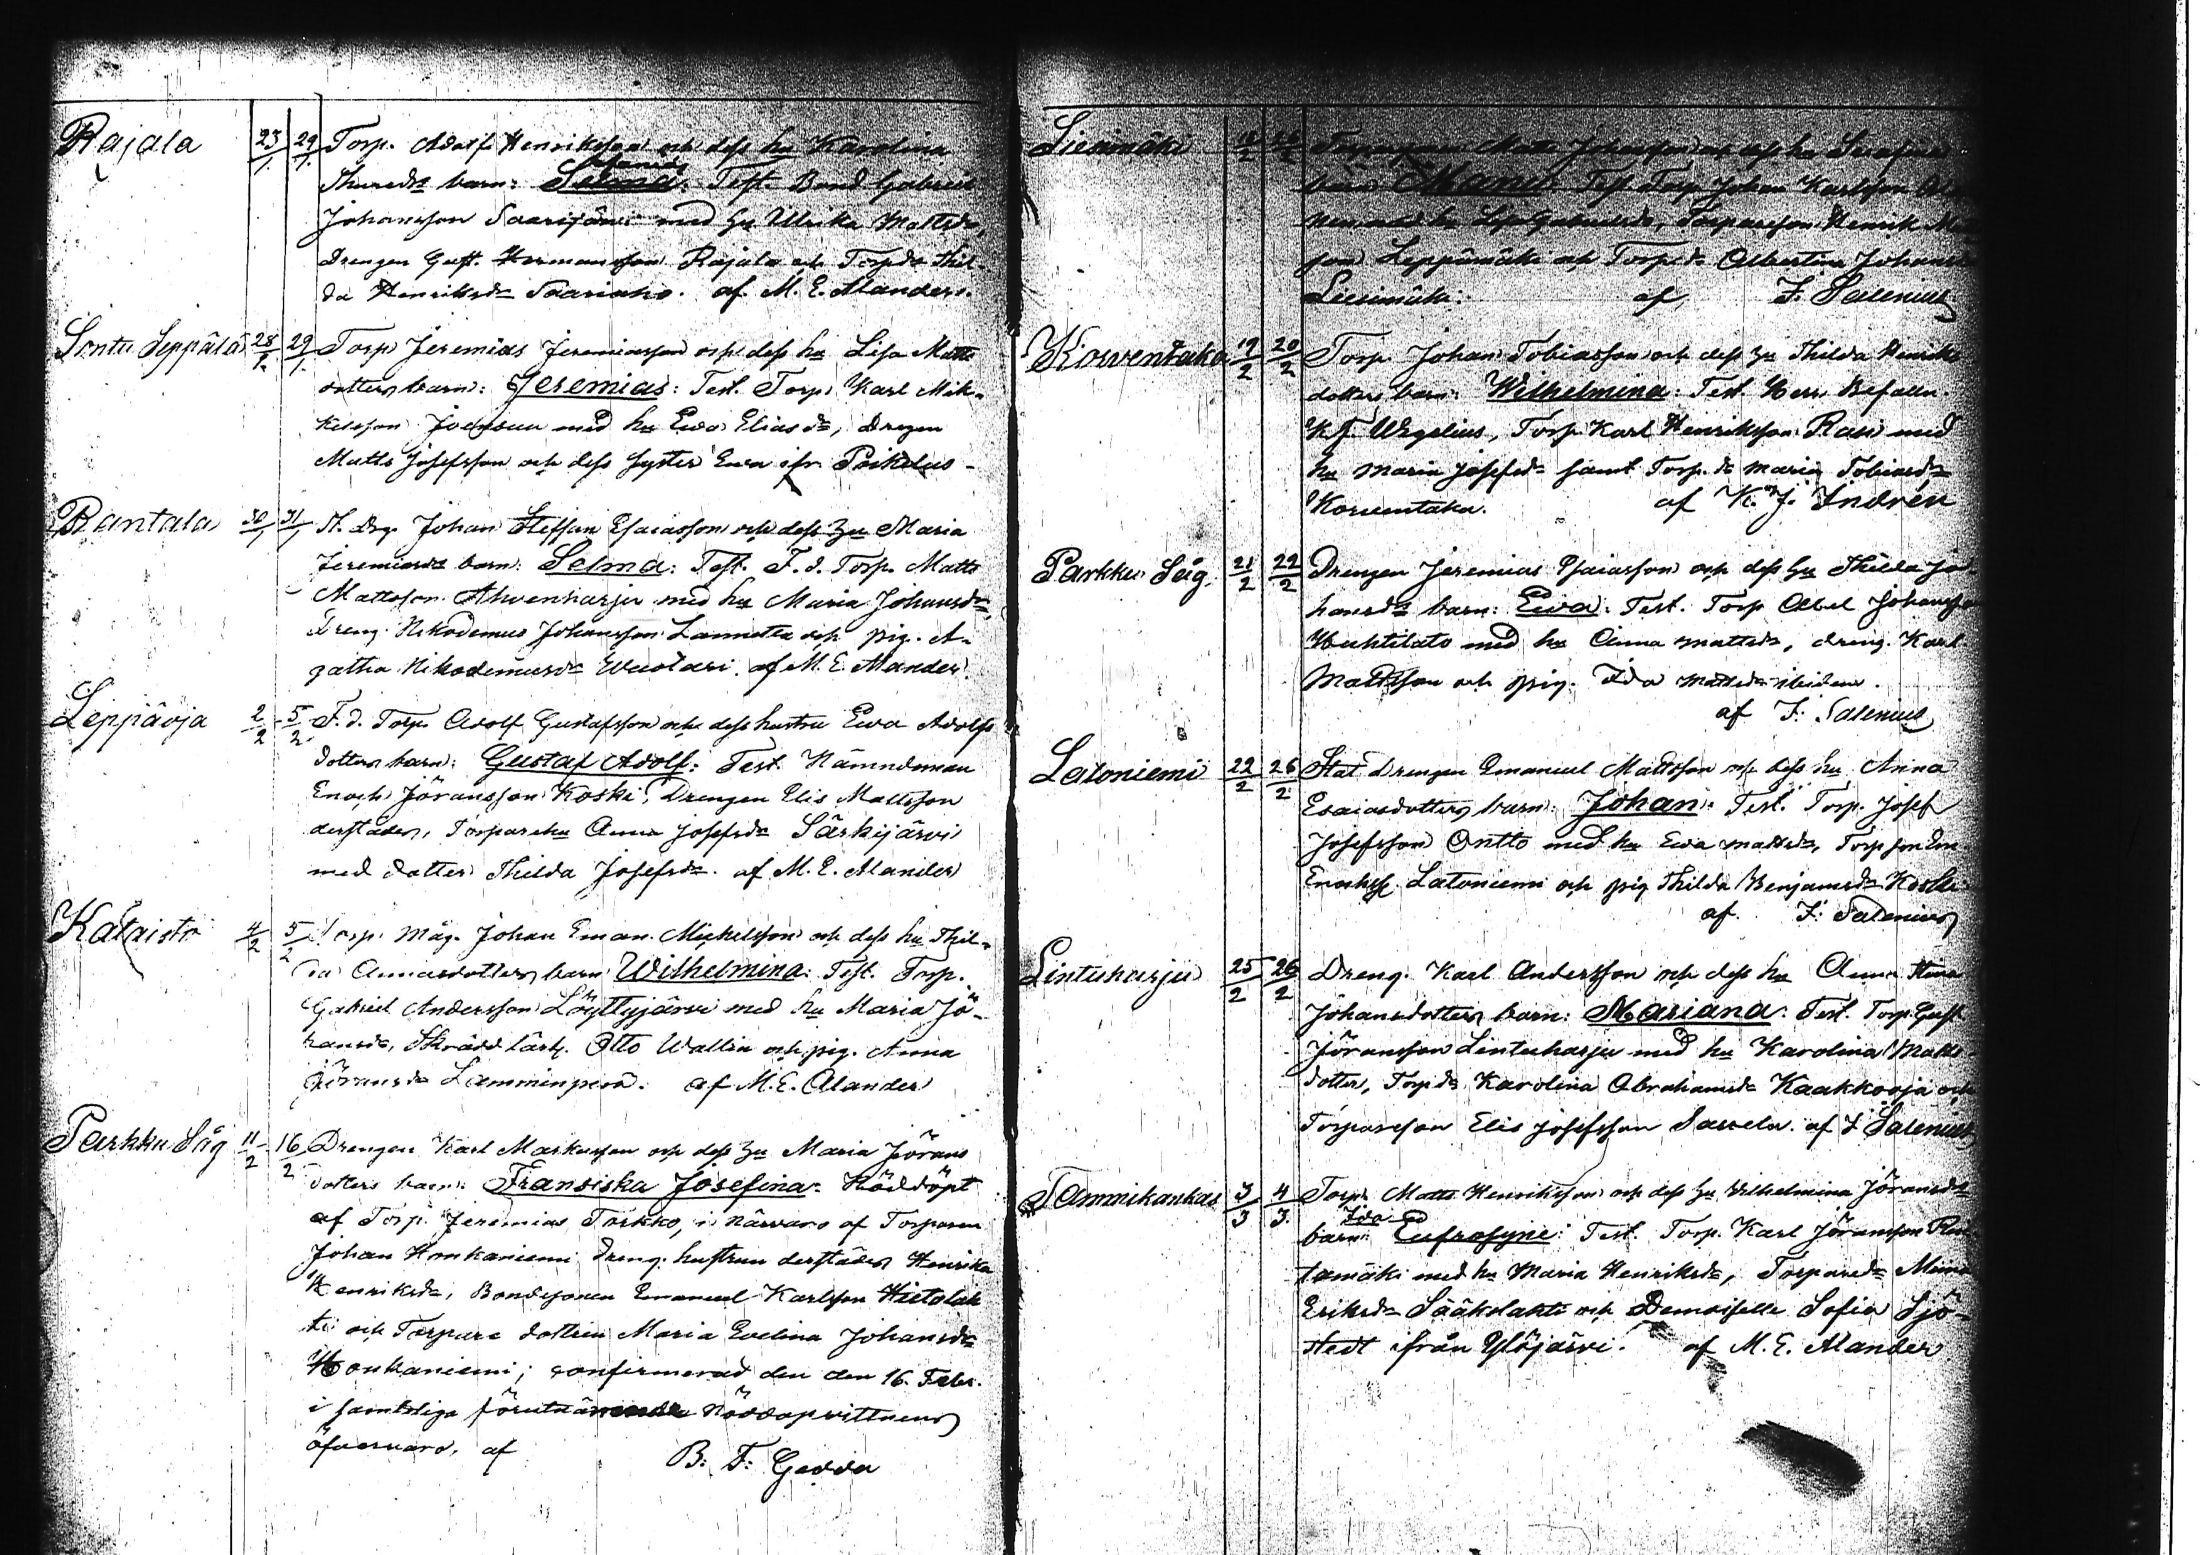 Rajala 23/1 29/1 Torp. Adolf Henriksson och dess hu Karolina
Thureds barn: Selma: Test. Bond Gabriel
Johansson Saarijärvi med hu Ullrika Mattsd,
Drengen Gust. Hermansson Rajala och Torpd Thil-
da Henriksd Saariaho. af M. E. Alander.
Sontu Seppälä 28/1 29/1 Torp Jeremias Jeremiasson och dess hu Lisa Matts
dotters barn: Jeremias: Test. Torp. Karl Mik-
kelsson med hu Ewa Eliasd, drengen
Matts Josefsson och dess syster Ewa ifr. Poikelus -
Rantala 30/1 31/1 St. Drg. Johan Steffan Esaiasson och dess hu Maria
Jeremiasds barn: Selma: Test. F. d. Torp. Matts
Mattsson Ahvenharju med hu Maria Johansd,
Dreng. Nikodemus Johansson Lannetta och pig. A-
gatha Nikodemusd af M. E. Alander.
Leppäoja 2/2 5/2 F. d. Torp. Adolf Gustafsson och dess hustru Ewa Adolfs
dotters barn: Gustaf Adolf: Test. Nämndeman
Enoch Jöransson Koski, Drengen Elis Mattsson
derstädes, Torpareh Anna Josefsd Särkijärvi
med dotter Thilda Josefsd. af M. E. Alander
Kataisto 4/2 5/2 Torp. Måg. Johan Eman. Mickelsson och dess hu Thil-
da Anniasdotters barn: Wilhelmina: Test. Torp.
Gabriel Andersson Löyttyjärvi med hu Maria Jo-
hansd, Skrädd lärl. Otto Wallin och pig. Anna
Jöransd Lamminperä. af M. E. Alander
Parkku Såg 11/2 16/2 Drengen Karl Markusson och dess hu Maria Jörans
dotters barn: Fransiska Josefina: Nöddöpt
af Torp. Jeremias Torkko, i närvaro af Torparen
Johan Honkaniemi dreng. hustrun derstädes Henrika
Henriksd, Bondesonen Emanuel Karlsson Hietolah
ti och Torpare dottren Maria Evelina Johansd
Honkaniemi; confirmerad den den 16. Febr.
i samtliga förutnämnde nöddopvittnens
öfvervaro, af B. F. Gedda
Liesimäki 22/2 Matts Johansson och dess hu Serafina
barn: Manu: Test. Torp. Johan Karlsson
med hu Lisa Gabrielsd, Torparson Henrik
son Leppämäki och Torp.d. Albertina Johans
Liesimäki: af J. Salenius
Korventaka 19/2 20/2 Torp. Johan Tobiasson och dess hu Thilda Henriks
dotters barn: Wilhelmina: Test. Herr Befalln.
K. J. Wegelius, Torp. Karl Henriksson Rasi med
hu Maria Josefsd samt Torp. d. Maria Tobiasd
Korventaka. af K. J. Indrén
Parkku Såg 21/2 22/2 Drengen Jeremias Esaiasson och dess hu Thilda Jo-
hansds barn: Ewa: Test. Torp Abel Johansson
Huhtilato med hu Anna Mattsd, dreng. Karl
Mattsson och pig. Ida Mattsd ibidem.
af J. Salenius
Latoniemi 22/2 26/2 Stat Drengen Emanuel Mattsson och dess hu Anna
Esaiasdotters barn: Johan: Test. Torp. Josef
Josefsson Ontto med hu Ewa Mattsd, Torp son Em
Enochss. Latoniemi och pig Thilda Benjamsd Koski
af. J. Salenius
Lintuharju 25/2 26/2 Dreng. Karl Andersson och dess hu Anna Stina
Johansdotters barn: Mariana: Test. Torp. Gust
Jöransson Lintuharju med hu Karolina Matts
dotter, Torp d. Karolina Abrahamsd Kaakkooja och
Torpareson Elis Josefsson Savela. af J. Salenius
Tammikankas 3/3 4/3 Torp. Matts Henriksson och dess hu Wilhelmina Jöransds
barn: Ida Eufrosyne: Test. Torp. Karl Jöransson
tamäki med hu Maria Henriksd, Torpared Mina
Eriksd Sääkslahti och Demoiselle Sofia Sjö-
stedt ifrån Ylöjärvi. af M. E. Alander